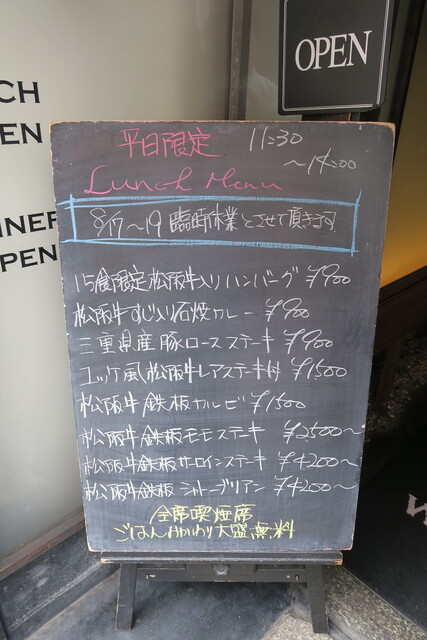 OPEN
CH
EN
INNER
PEN
平日限定 11:30
～14:00
Lunch Menu
8/17～19 臨時休業とさせて頂きます
15食限定松阪牛入りハンバーグ ¥900
松阪牛すじ入り石焼カレー ¥900
三重県産豚ロースステーキ ¥900
ユッケ風松阪牛レアステーキ丼 ¥1500
松阪牛鉄板カルビ ¥1500
松阪牛鉄板モモステーキ ¥2500～
松阪牛鉄板サーロインステーキ ¥4200～
松阪牛鉄板シャトーブリアン ¥4200～
全席喫煙席
ごはんおかわり大盛無料